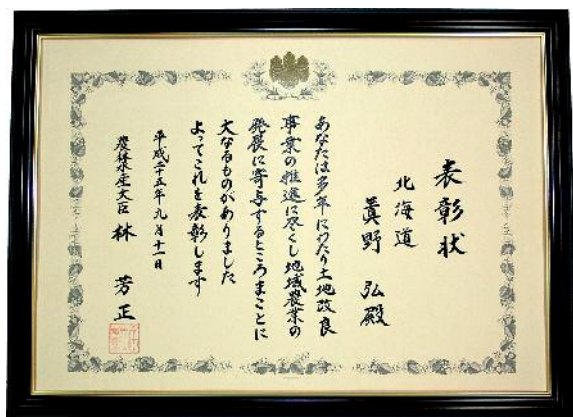 表彰状
北海道
眞野 弘殿
あなたは多年にわたり土地改良
事業の推進に尽くし地域農業の
発展に寄与するところまことに
大なるものがありました
よってこれを表彰します
平成二十五年九月十一日
農林水産大臣 林 芳正